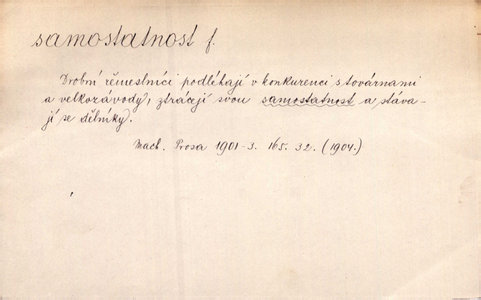 samostatnost f.
Drobní řemeslníci podléhají v konkurenci s továrnami
a velkozávody, ztrácejí svou samostatnost a stáva-
jí se dělníky.
Mach. Prosa 1901-3. 165. 32. (1904.)